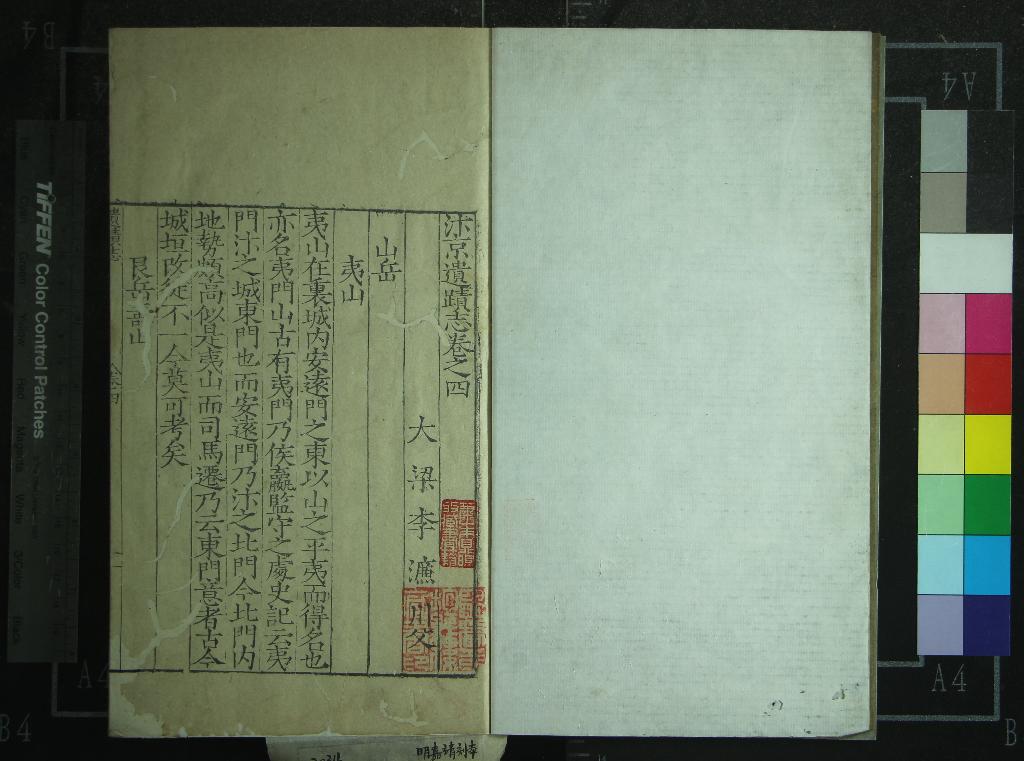 汴京遺蹟志卷之四
大梁李濂川父
山岳
夷山
夷山在裏城内安遠門之東以山之平夷而得名也
亦名夷門山古有夷門乃侯嬴監守之處史記云夷
門汴之城東門也而安遠門乃汴之北門今北門内
地勢頗高似是夷山而司馬遷乃云東門意者古今
城垣改徙不一今莫可考矣
艮岳壽山
明嘉靖刻本
TIFFEN Color Control Patches
A4
A4
A4
A4
B4
B4